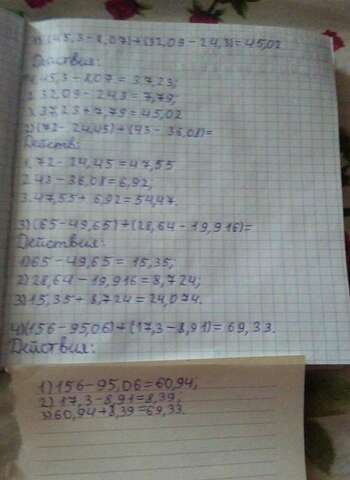 1) (45,3-8,07)+(32,09-24,3)=45,02
Действия:
1. 45,3-8,07=37,23;
2. 32,09-24,3=7,79;
3. 37,23+7,79=45,02
2) (72-24,45)+(43-36,08)=
Действ:
1. 72-24,45=47,55
2. 43-36,08=6,92;
3. 47,55+6,92=54,47.
3) (65-49,65)+(28,64-19,916)=
Действия:
1) 65-49,65=15,35;
2) 28,64-19,916=8,724;
3) 15,35+8,724=24,074.
4) (156-95,06)+(17,3-8,91)=69,33.
Действия:
1) 156-95,06=60,94;
2) 17,3-8,91=8,39;
3) 60,94+8,39=69,33.